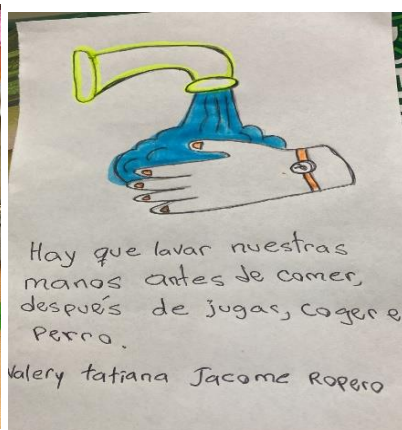 Hay que lavar nuestras
manos antes de comer,
después de jugas, coger e
perro.
Valery tatiana Jacome Ropero